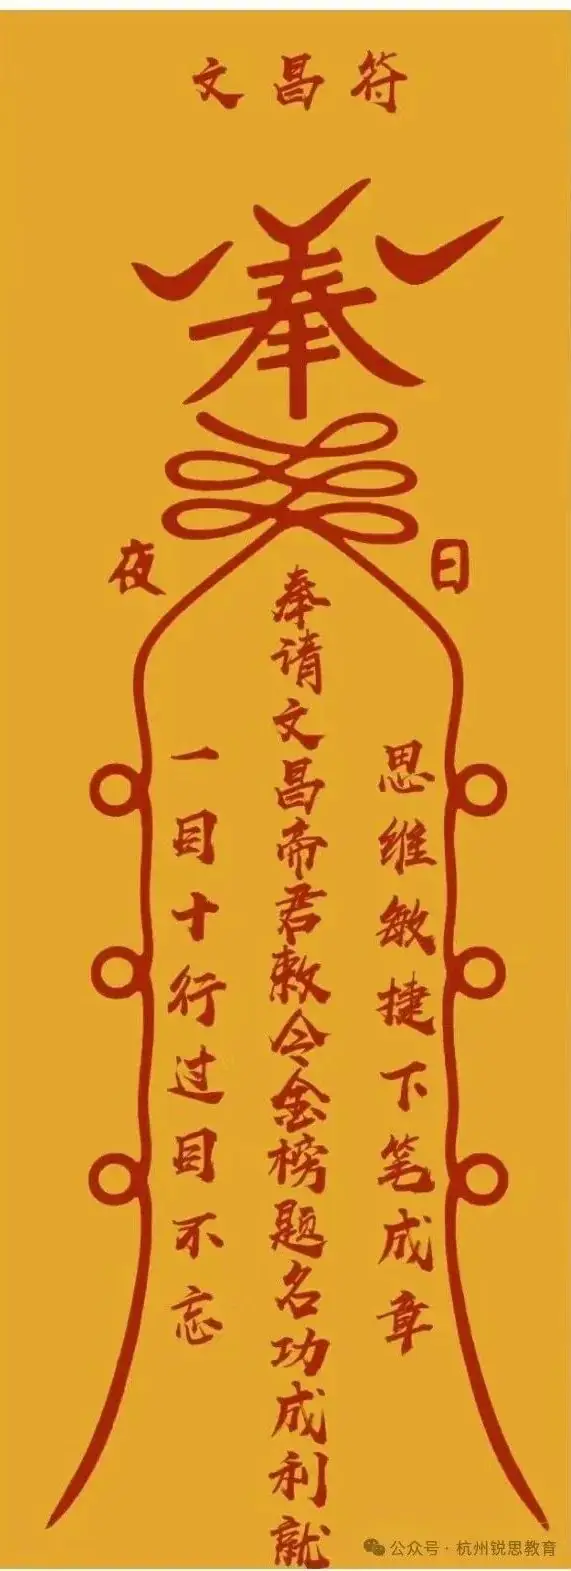 文昌符
奉
日
夜
思维敏捷下笔成章
奉请文昌帝君敕令金榜题名功成利就
一目十行过目不忘
公众号·杭州锐思教育